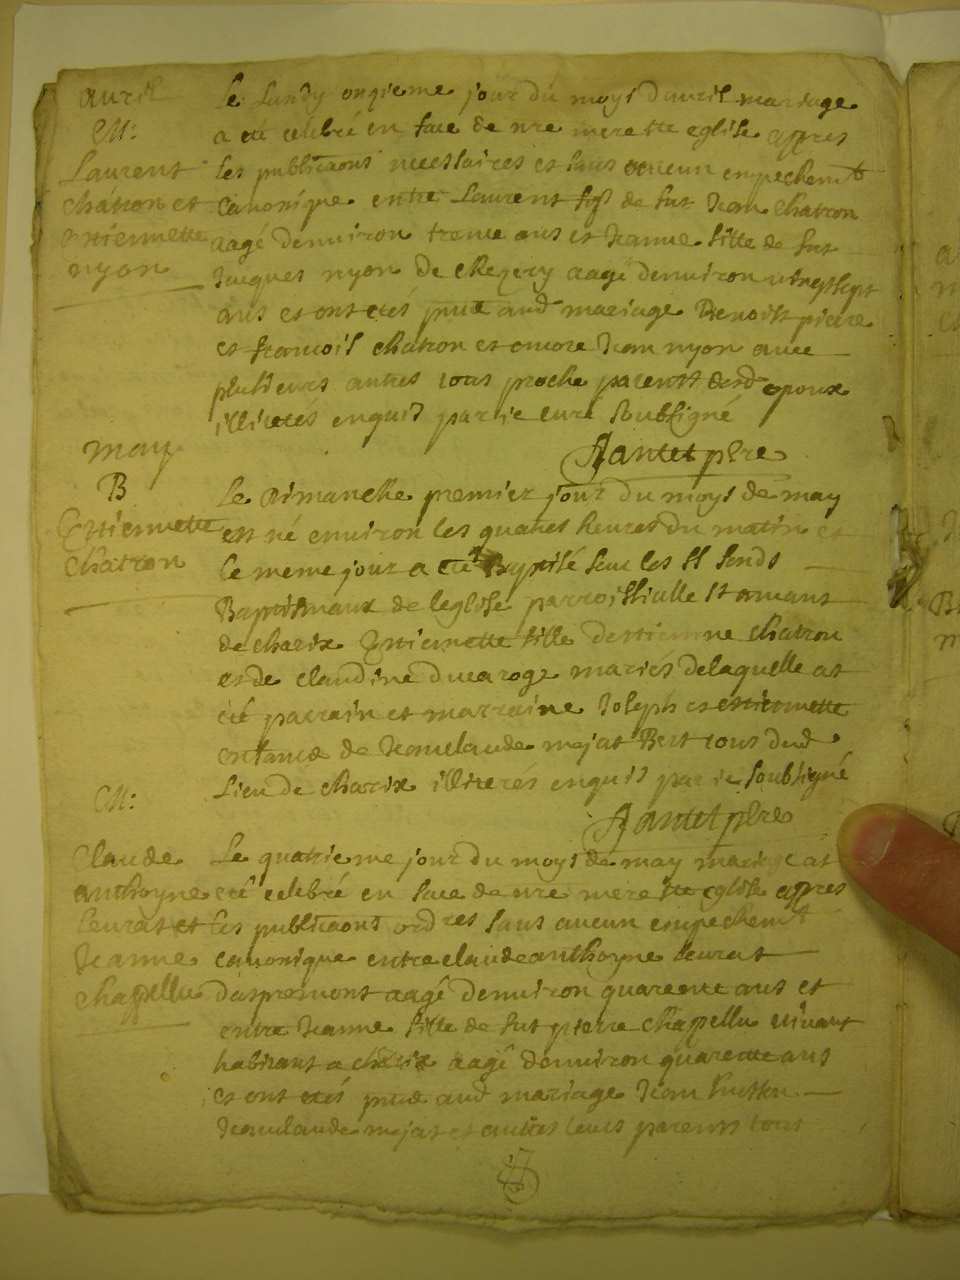 avril
M:
Laurent
Chatron et
Estiennette
nyon
Le Lundy onzieme jour du moys davril mariage
a eté celebré en face de nre mere ste eglise apres
les publicaons necessaires et sans aucun empechemt
Canonique entre Laurent fils de fut Jean Chatron
aagé denviron trente ans et Jeanne fille de fut
Jacques nyon de Chezery aagé denviron vingt sept
ans et ont etés pnts aud mariage Benoist pierre
et francois Chatron et encore Jean nyon avec
plusieurs autres tous proche parents desd epoux
illiterés enquis par ie curé soubsigné
Jantet ptre
may
B
Estiennette
Chatron
Le Dimanche premier jour du moys de may
est né environ les quatres heures du matin et
le meme jour a eté Baptisé sur les st fonds
Baptismaux de leglise parroissialle st amant
de Charix Estiennette fille destienne Chatron
et de Claudine ducaroge mariés de laquelle at
été parrain et marraine Joseph et estiennette
enfants de Jeanclaude mejat Bert tous dud
Lieu de Charix illiterés enquis par ie soubsigné
Jantet ptre
M:
Claude
anthoyne
Leurat et
Jeanne
Chapellu
Le quatrieme jour du moys de may mariage at
eté celebré en face de nre mere ste eglise apres
les publicaons ordres sans aucun empechemt
canonique entre claude anthoyne Leurat
daspremont aagé denviron quarente ans et
entre Jeanne fille de fut pierre Chapellu vivant
habitant a charix aagé denviron quarente ans
et ont etés pnts aud mariage Jean
Jeanclaude mejat et autres leurs parents tous